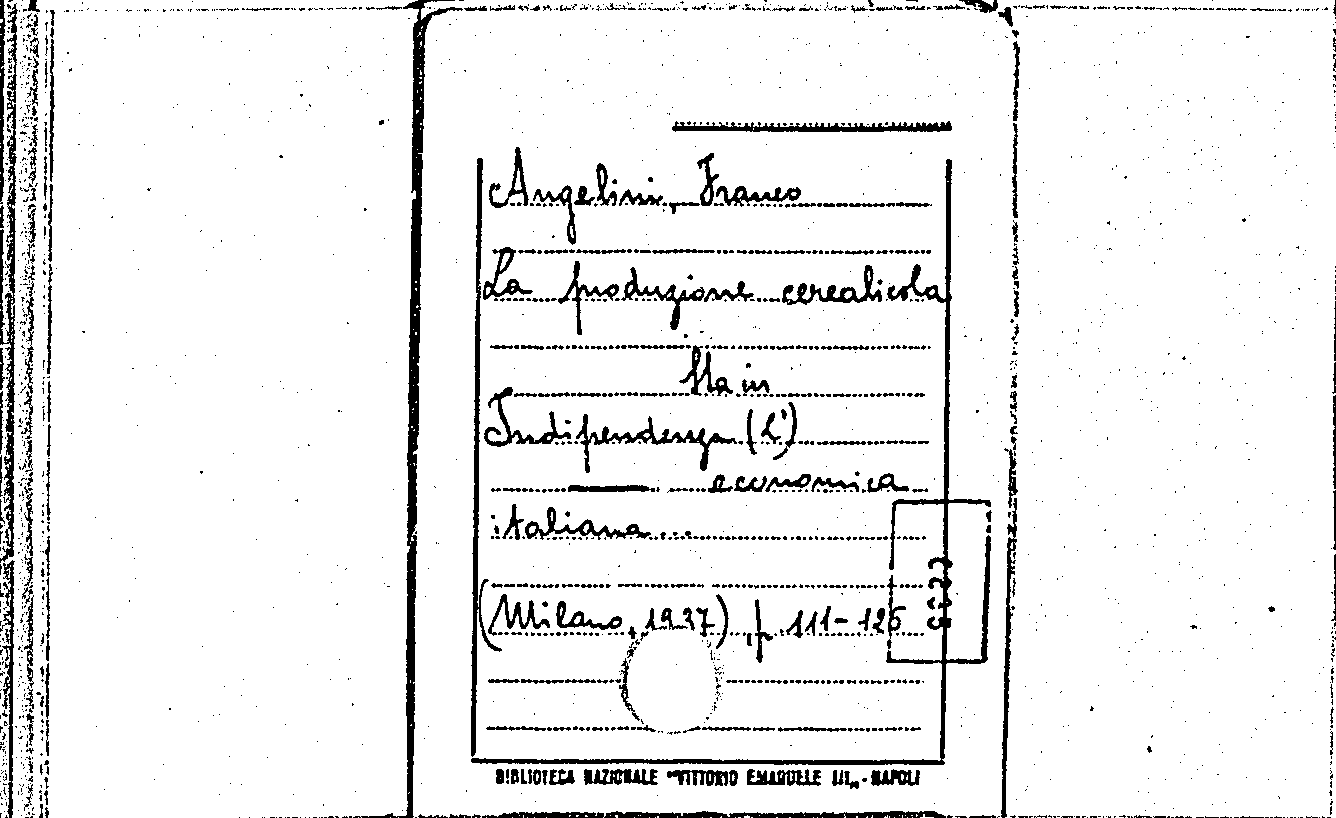 Angelini, Franco
La produzione cerealicola
Sta in
Indipendenza (L')
economica
italiana...
(Milano, 1937), p. 111-126
BIBLIOTECA NAZIONALE "VITTORIO EMANUELE III„ - NAPOLI